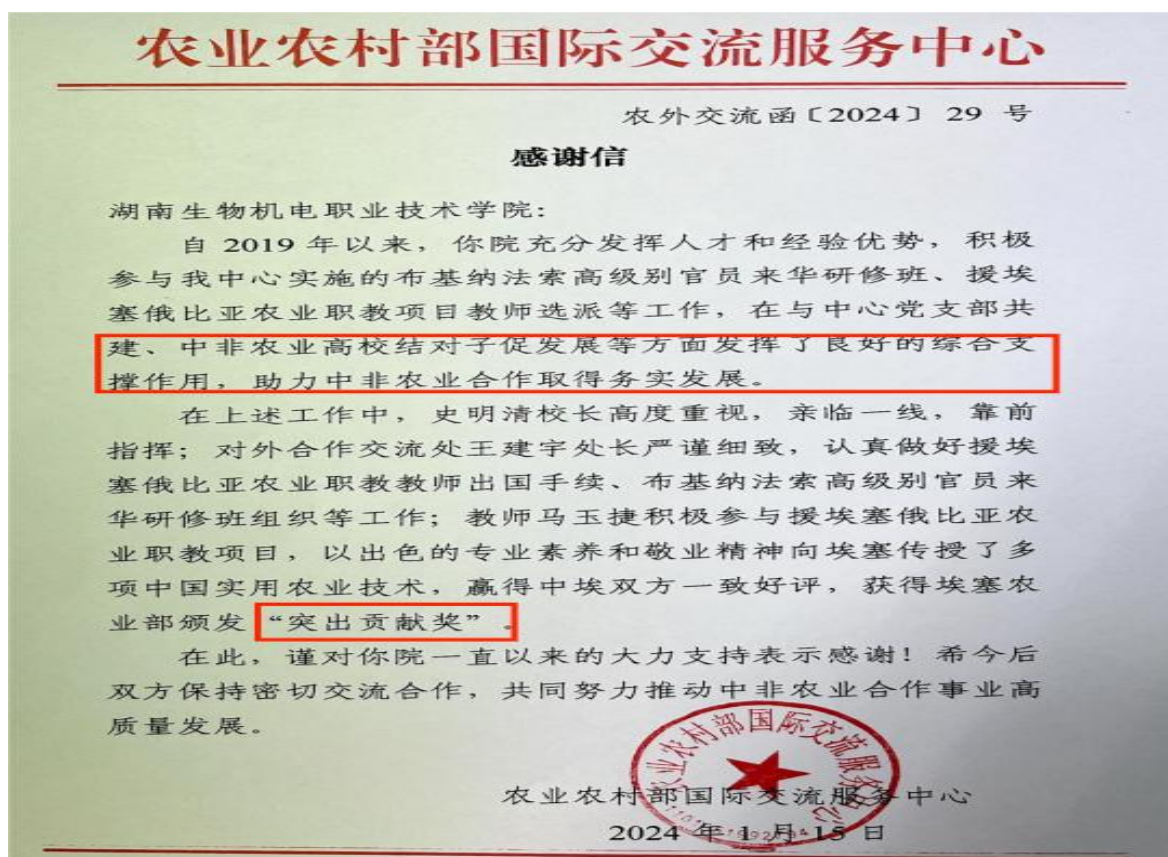 农业农村部国际交流服务中心
农外交流函〔2024〕 29 号
感谢信
湖南生物机电职业技术学院：
自 2019 年以来，你院充分发挥人才和经验优势，积极
参与我中心实施的布基纳法索高级别官员来华研修班、援埃
塞俄比亚农业职教项目教师选派等工作，在与中心党支部共
建、中非农业高校结对子促发展等方面发挥了良好的综合支
撑作用，助力中非农业合作取得务实发展。
在上述工作中，史明清校长高度重视，亲临一线，靠前
指挥；对外合作交流处王建宇处长严谨细致，认真做好援埃
塞俄比亚农业职教教师出国手续、布基纳法索高级别官员来
华研修班组织等工作；教师马玉捷积极参与援埃塞俄比亚农
业职教项目，以出色的专业素养和敬业精神向埃塞传授了多
项中国实用农业技术，赢得中埃双方一致好评，获得埃塞农
业部颁发“突出贡献奖”。
在此，谨对你院一直以来的大力支持表示感谢！希今后
双方保持密切交流合作，共同努力推动中非农业合作事业高
质量发展。
农业农村部国际交流服务中心
农业农村部国际交流服务中心
2024 年 1 月 15 日